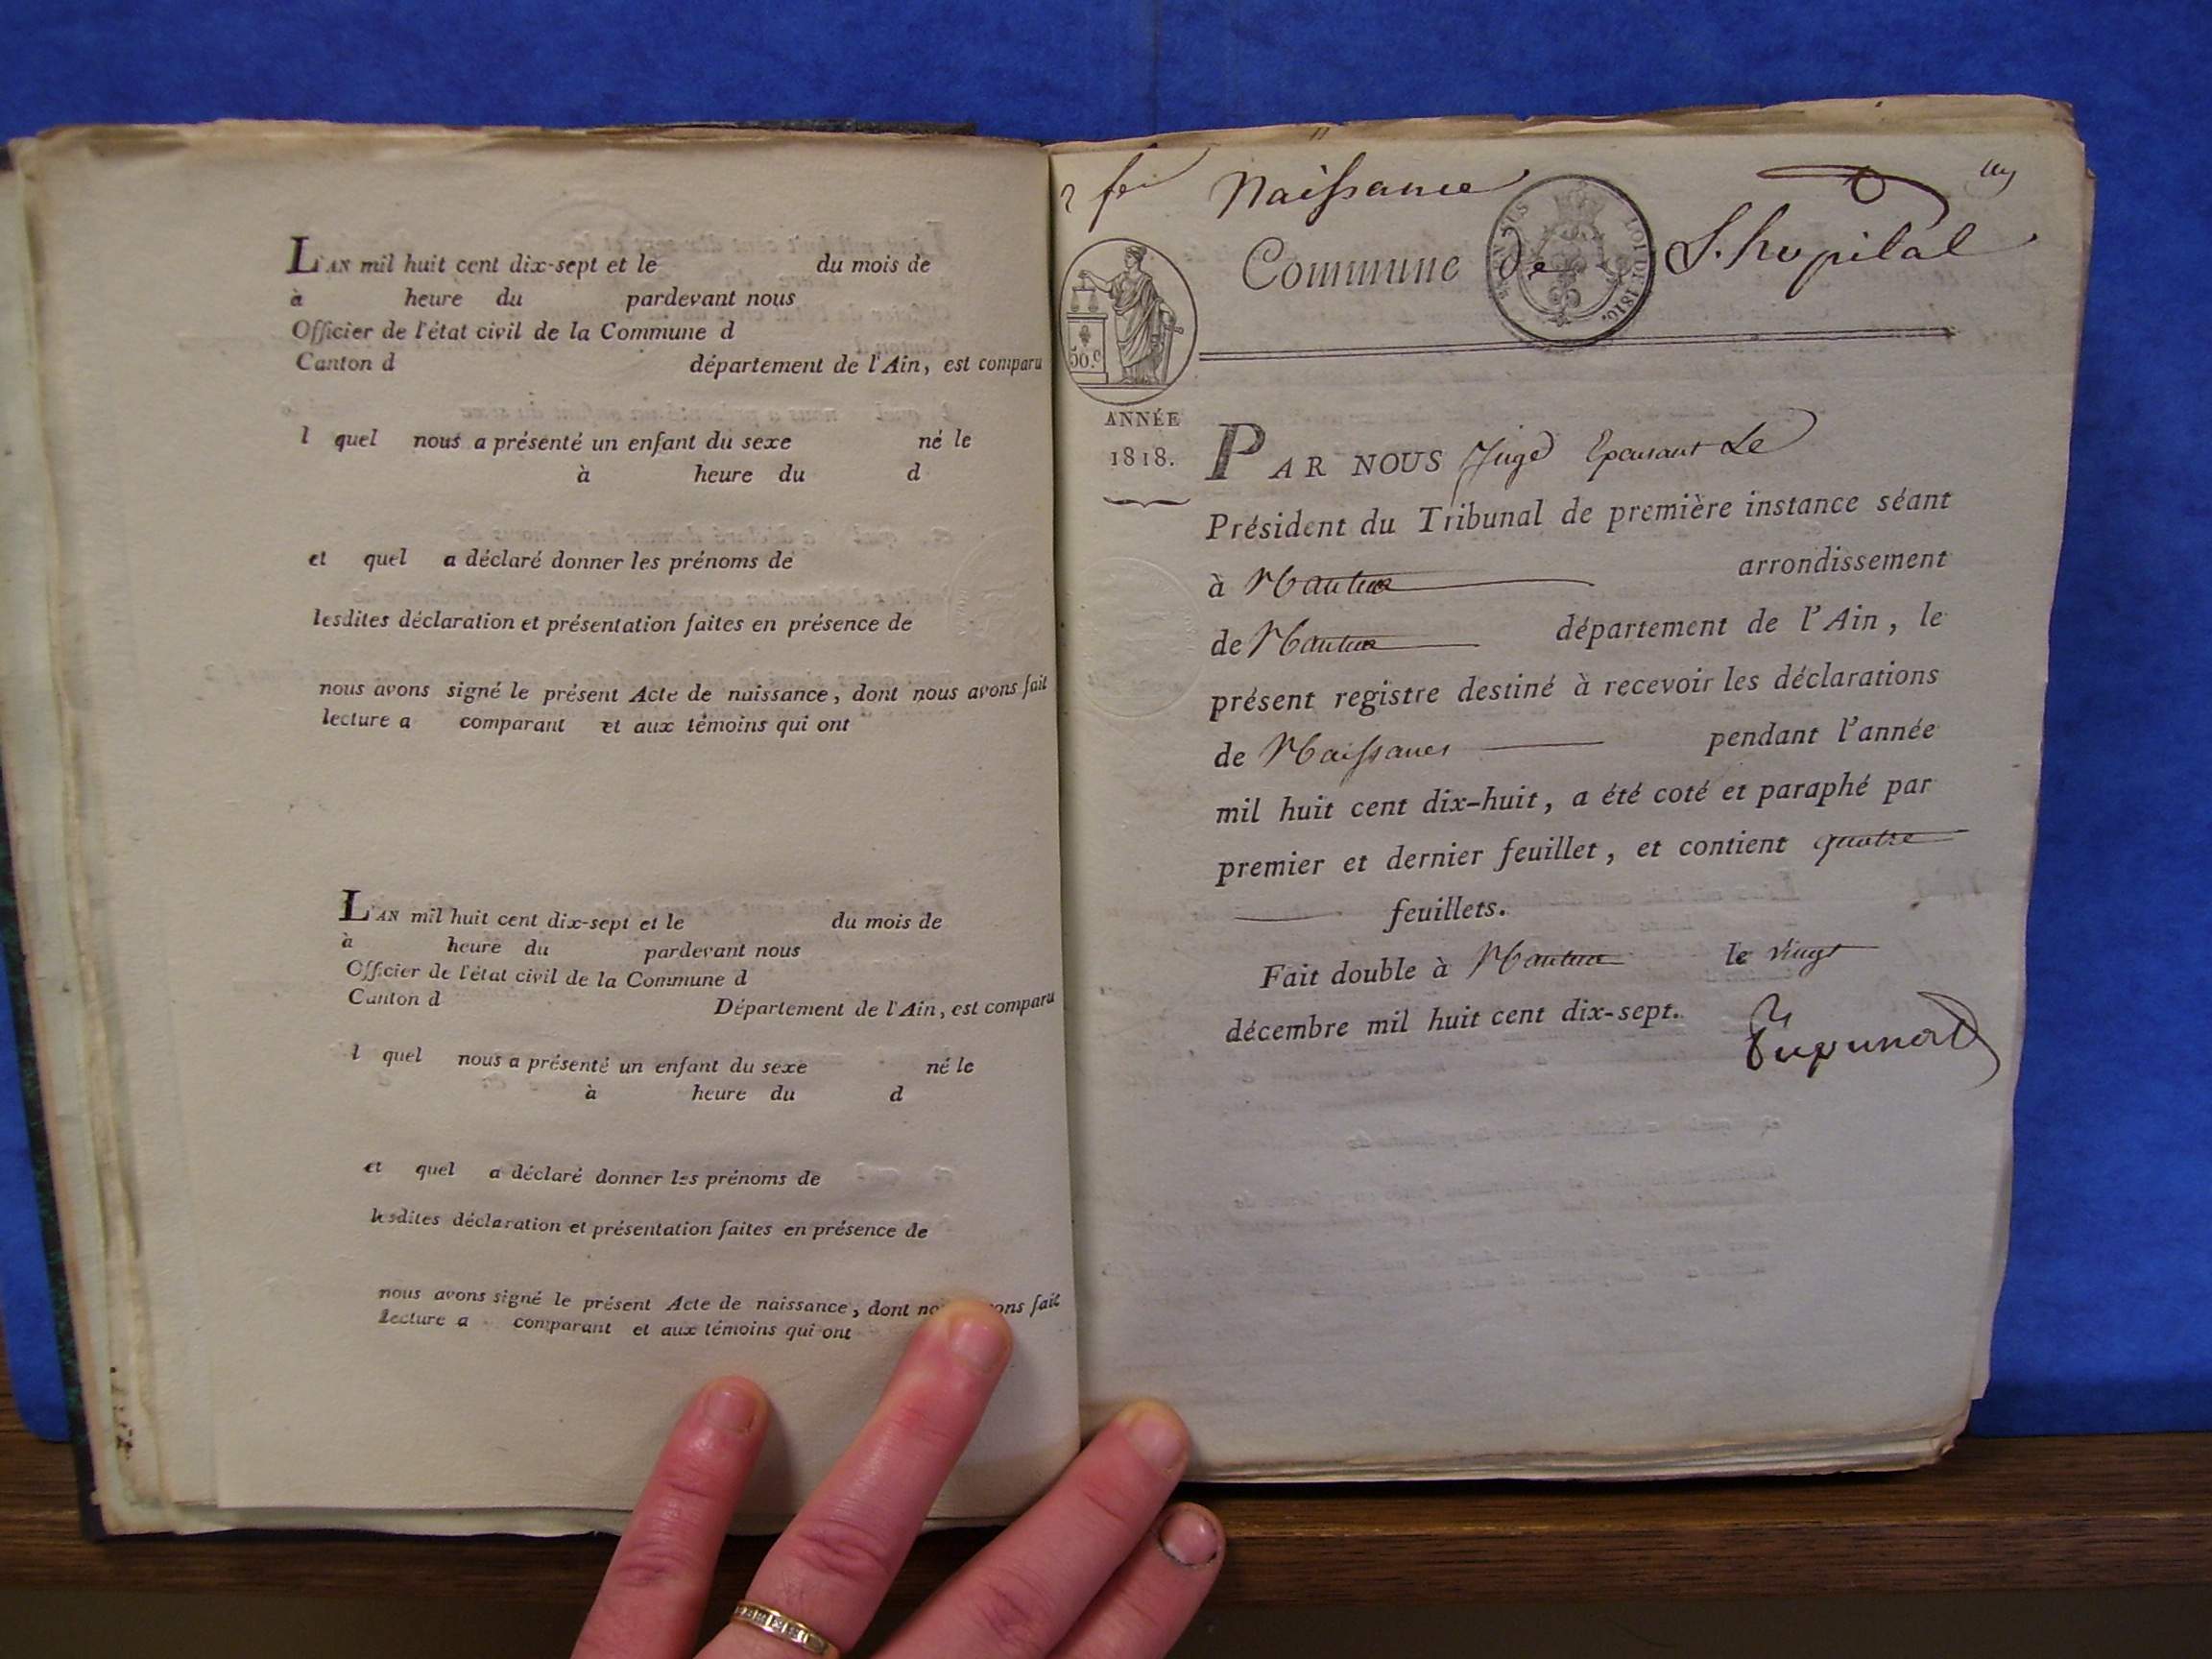 L'AN mil huit cent dix-sept et le du mois de
à heure du pardevant nous
Officier de l'état civil de la Commune d
Canton d département de l'Ain, est comparu
l quel nous a présenté un enfant du sexe né le
à heure du d
et quel a déclaré donner les prénoms de
lesdites déclaration et présentation faites en présence de
nous avons signé le présent Acte de naissance, dont nous avons fait
lecture a comparant et aux témoins qui ont
L'AN mil huit cent dix-sept et le du mois de
à heure du pardevant nous
Officier de l'état civil de la Commune d
Canton d Département de l'Ain, est comparu
l quel nous a présenté un enfant du sexe né le
à heure du d
et quel a déclaré donner les prénoms de
lesdites déclaration et présentation faites en présence de
nous avons signé le présent Acte de naissance, dont fait
lecture a comparant et aux témoins qui ont
Naissance
Commune de L'hopital
LOI DE 1816.
50.c
ANNÉE
1818.
PAR NOUS Juge Le
Président du Tribunal de première instance séant
à Nantua arrondissement
de Nantua département de l'Ain, le
présent registre destiné à recevoir les déclarations
de Naissances pendant l'année
mil huit cent dix-huit, a été coté et paraphé par
premier et dernier feuillet, et contient quatre
feuillets.
Fait double à Nantua le vingt
décembre mil huit cent dix-sept.